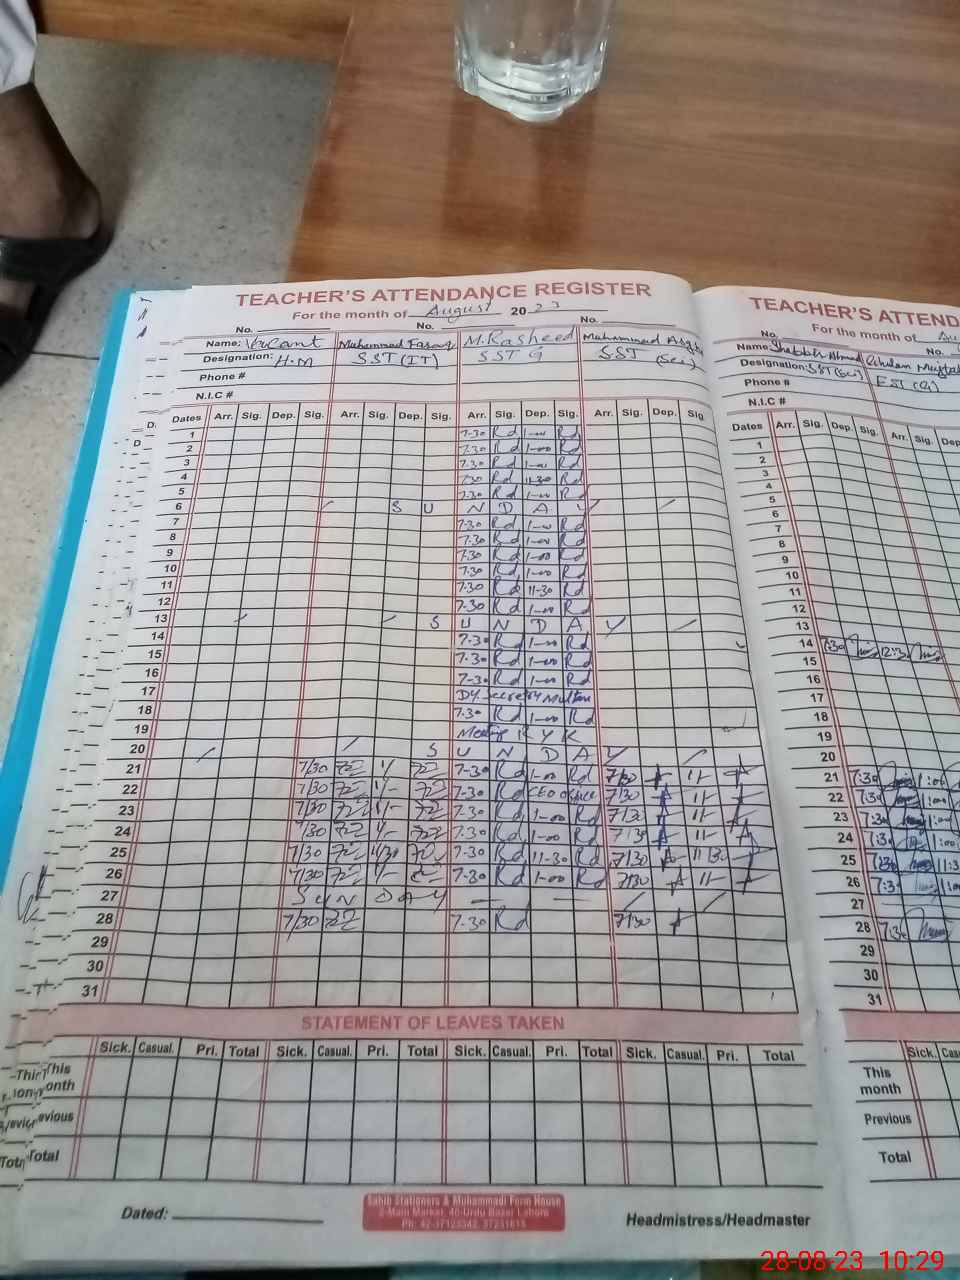 TEACHER'S ATTENDANCE REGISTER
For the month of August 2023
No. No. No.
Name: Vacant Muhammad Farooq M. Rasheed Muhammad
Designation: H.M SST (IT) SST G SST (Sci)
Phone #
N.I.C #
Dates Arr. Sig. Dep. Sig. Arr. Sig. Dep. Sig. Arr. Sig. Dep. Sig. Arr. Sig. Dep. Sig.
1 7-30 Rd 1-00 Rd
2 7-30 Rd 1-00 Rd
3 7-30 Rd 1-00 Rd
4 7-30 Rd 11-30 Rd
5 7-30 Rd 1-00 Rd
6 S U N D A Y
7 7-30 Rd 1-00 Rd
8 7-30 Rd 1-00 Rd
9 7-30 Rd 1-00 Rd
10 7-30 Rd 1-00 Rd
11 7-30 Rd 11-30 Rd
12 7-30 Rd 1-00 Rd
13 S U N D A Y
14 7-30 Rd 1-00 Rd
15 7-30 Rd 1-00 Rd
16 7-30 Rd 1-00 Rd
17 Dy. Secretry Multan
18 7-30 Rd 1-00 Rd
19 Meeting R Y K
20 S U N D A Y
21 7/30 1/- 7-30 Rd 1-00 Rd 7/30 1/-
22 7/30 1/- 7-30 Rd CEO office 7/30 1/-
23 7/30 1/- 7-30 Rd 1-00 Rd 7/30 1/-
24 7/30 1/- 7-30 Rd 1-00 Rd 7/30 1/-
25 7/30 11/30 7-30 Rd 11-30 Rd 7/30 11/30
26 7/30 1/- 7-30 Rd 1-00 Rd 7/30 1/-
27 S U N D A Y
28 7/30 7-30 Rd 7/30
29
30
31
STATEMENT OF LEAVES TAKEN
Sick. Casual. Pri. Total Sick. Casual. Pri. Total Sick. Casual. Pri. Total Sick. Casual. Pri. Total
This month
Previous
Total
Dated:
Sahib Stationers & Muhammadi Form House
2-Main Market, 40-Urdu Bazar Lahore
Headmistress/Headmaster
TEACHER'S ATTEND
For the month of
No. No.
Name: Shabbir Ahmad Ghulam
Designation: SST (Sci) EST (G)
Phone #
N.I.C #
Dates Arr. Sig. Dep. Sig. Arr. Sig. Dep.
1
2
3
4
5
6
7
8
9
10
11
12
13
14 7:30 12:30
15
16
17
18
19
20
21 7:30 1:00
22 7:30 1:00
23 7:30 1:00
24 7:30 1:00
25 7:30 11:3
26 7:30 1:00
27
28 7:30
29
30
31
Sick. Cas
This month
Previous
Total
28-08-23 10:29